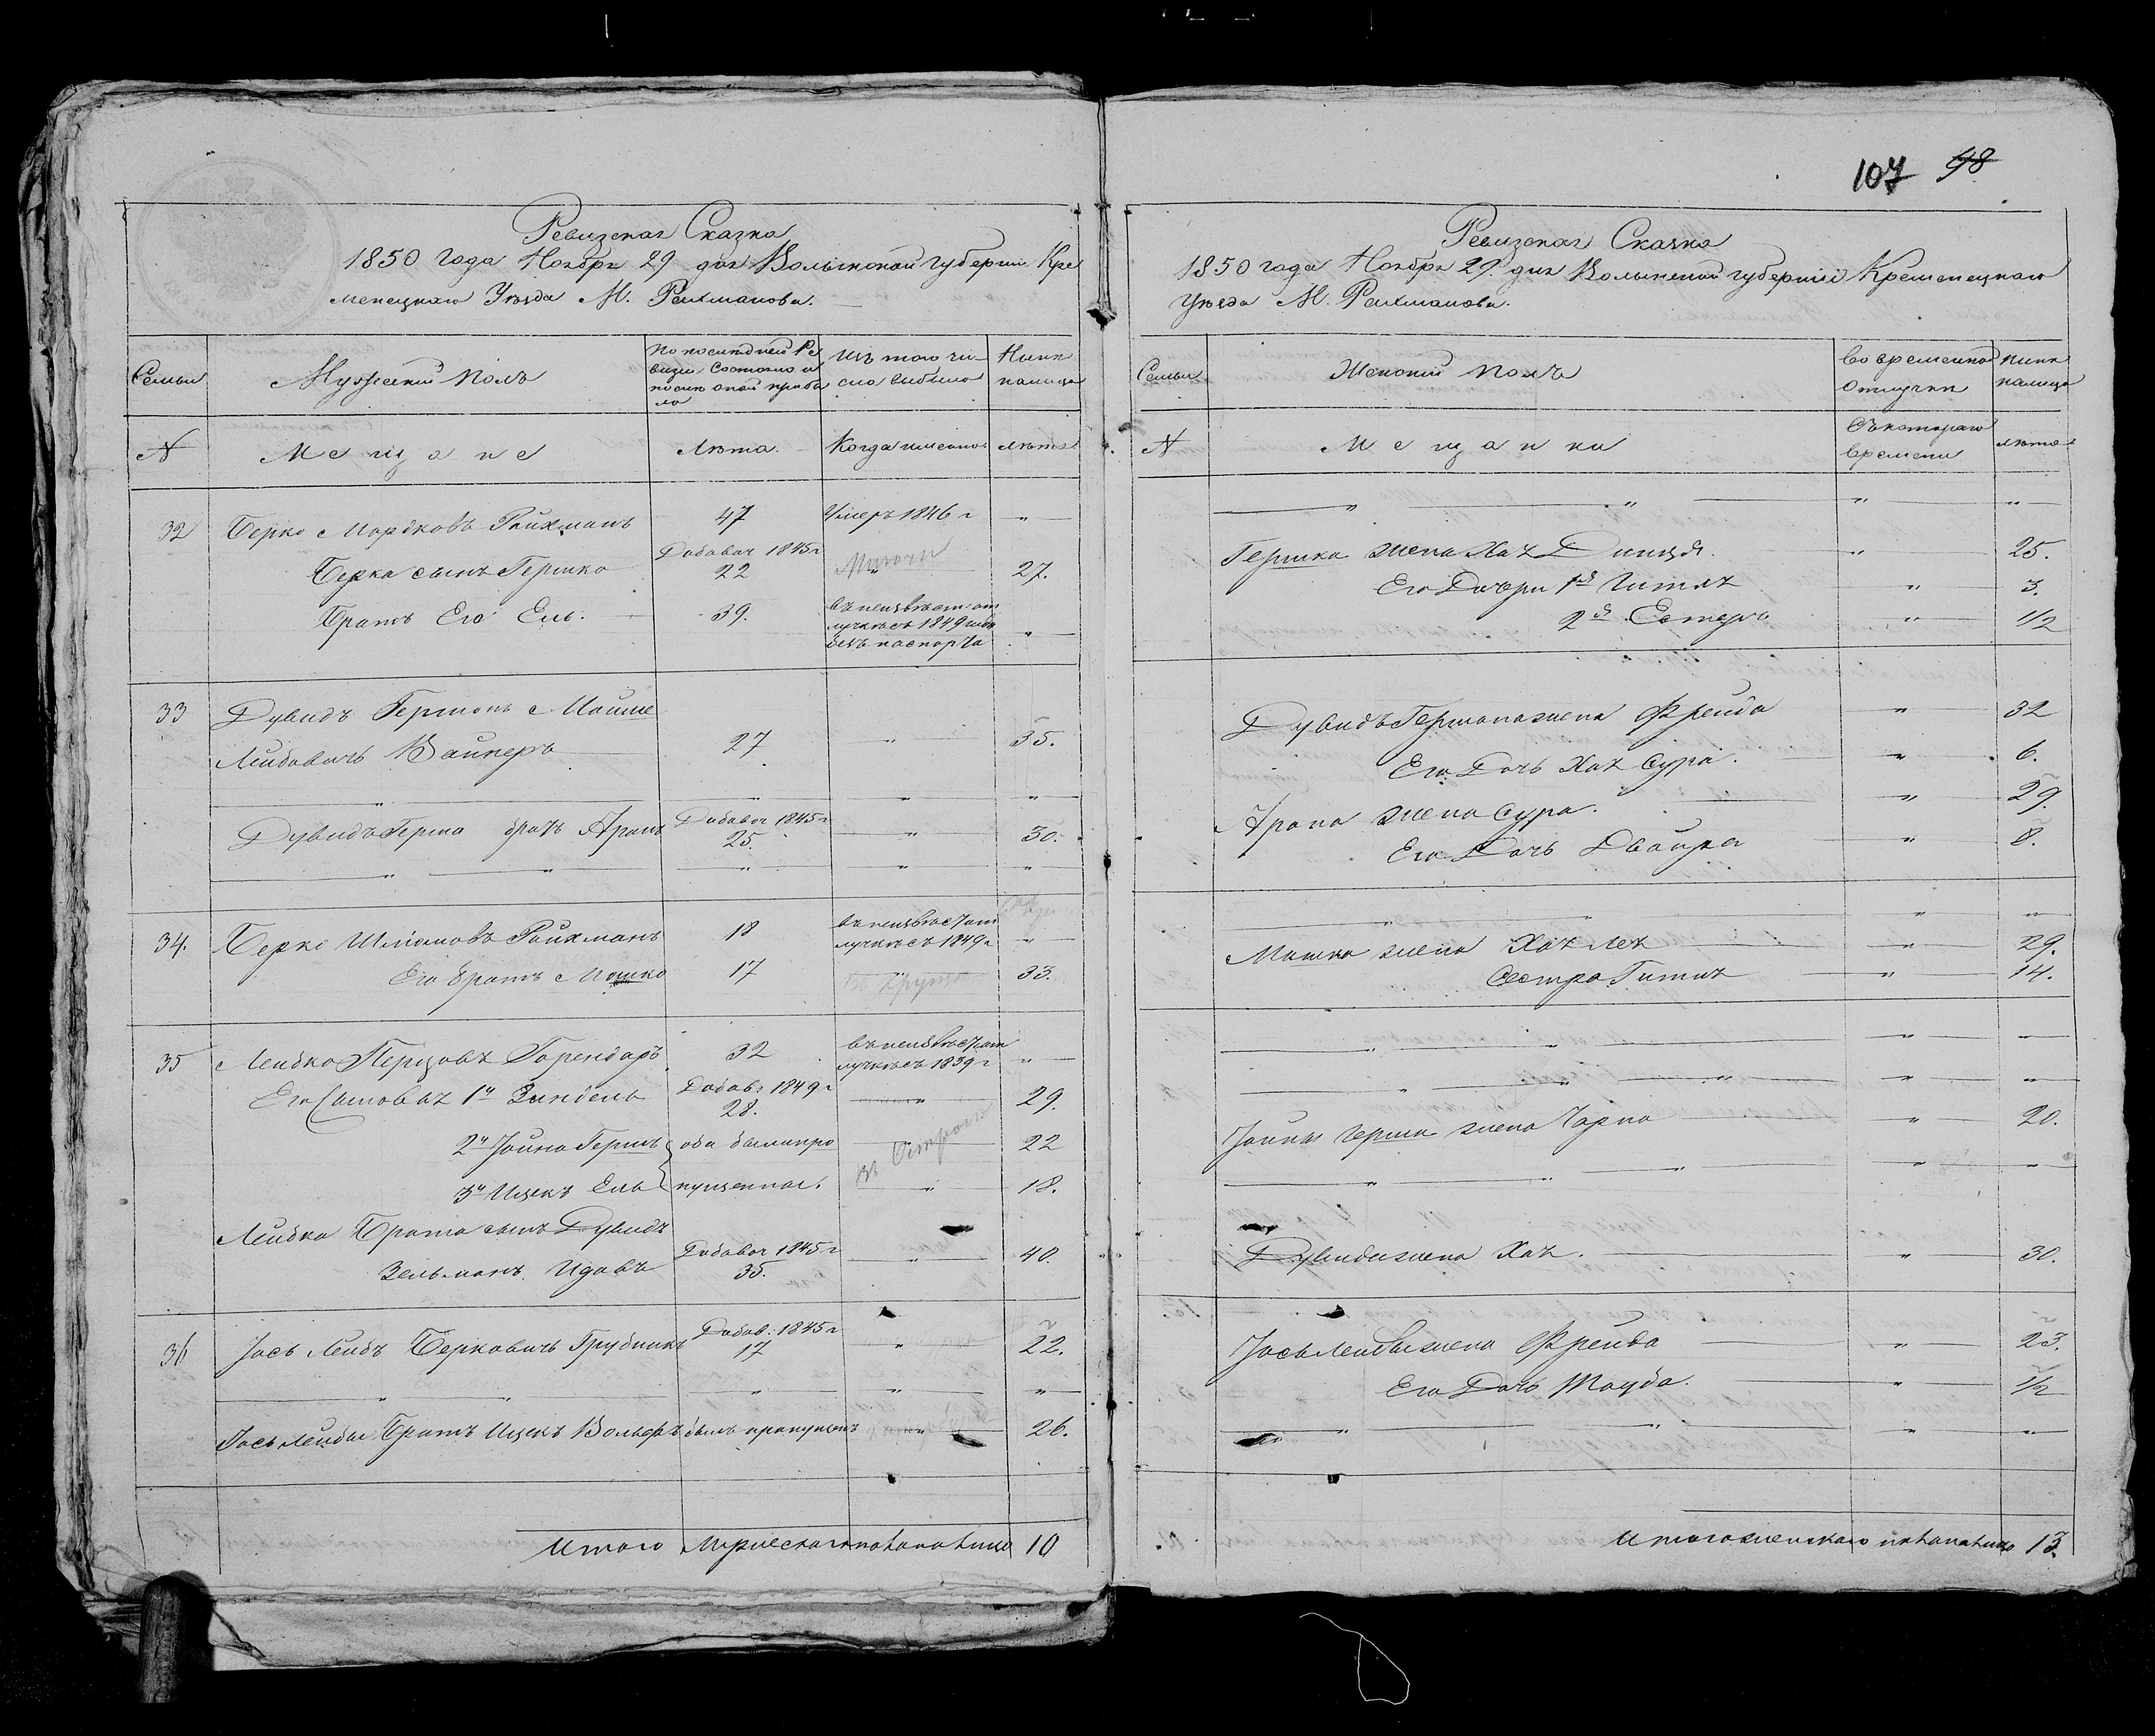 107 98
Ревизская Сказка
1850 года Ноября 29 дня Волынской губернии Кре
менецкаго Уезда М. Рахманова.
Семьи
Мужеский полъ
По последней Ре
визии состояло и
после оной прибы
ло
Изъ того чи-
сла выбыло
Ныне
налицо
№
Мещане
Лета.
Когда именно
лета
32
Берко Мордковъ Райхманъ
47
Умеръ 1846 г
"
Берка сынъ Гершко
Добавоч 1845 г
22
27.
Братъ Его Ель.
39.
въ неизвест: от
лучке съ 1849 года
безъ паспорта
"
33
Дувидъ Гершонъ Мошке
Лейбовичъ Вайнеръ
27
"
35.
" " " "
Дувидъ Герша братъ Аронъ
Добавоч 1845 г
25.
"
30.
" " " " "
34.
Берко Шлиомовъ Райхманъ
18
въ неизвест от
лучке съ 1849 г
"
Его братъ Мошко
17
33.
35
Лейбко Перцовъ Горендаръ
32
въ неизвест от
лучке съ 1839 г
"
Его Сыновья 1й Зиндель
Добав: 1849 г
28.
"
29.
2й Іойна Гершъ
оба были про
въ Острогѣ
22
3й Ицекъ Ель
пущенные.
"
18.
Лейбка Брата сынъ Дувидъ
Зельманъ Идовъ
Добавоч 1845 г
35.
"
40.
36
Іось Лейбъ Берковичъ Грубникъ
Добав: 1845 г
17
"
22.
" " " " "
Іось Лейбы Братъ Ицекъ Вольфъ
былъ пропущенъ
"
26.
Итого мужескаго пола налицо 10
Ревизская Сказка
1850 года Ноября 29. дня Волынской губернии Кременецкаго
Уезда М. Рахманова.
Семьи
Женский полъ
Во временной
отлучке
Ныне
налицо
№
Мещанки
Съ котораго
времени
лета
" " " "
Гершка жена Хая Динця.
"
25.
Его Дочери 1я Гитля
"
3.
2я Естеръ
"
1/2
Дувидъ Гершона жена Фрейда
"
32
Его Дочь Хая Сура.
"
6.
Арона жена Сура.
"
29.
Его Дочь Двойра
"
8.
" " " "
Мошка жена Хая Лея
"
29.
Сестра Гитля
"
14.
" " " "
" " " " "
Іойны Герша жена Чарна
"
20.
" " " " "
Дувида жена Хая.
"
30.
Іось Лейбы жена Фрейда
"
23.
Его Дочь Тауба.
"
1/2
" " " "
Итого женскаго пола налицо 13.